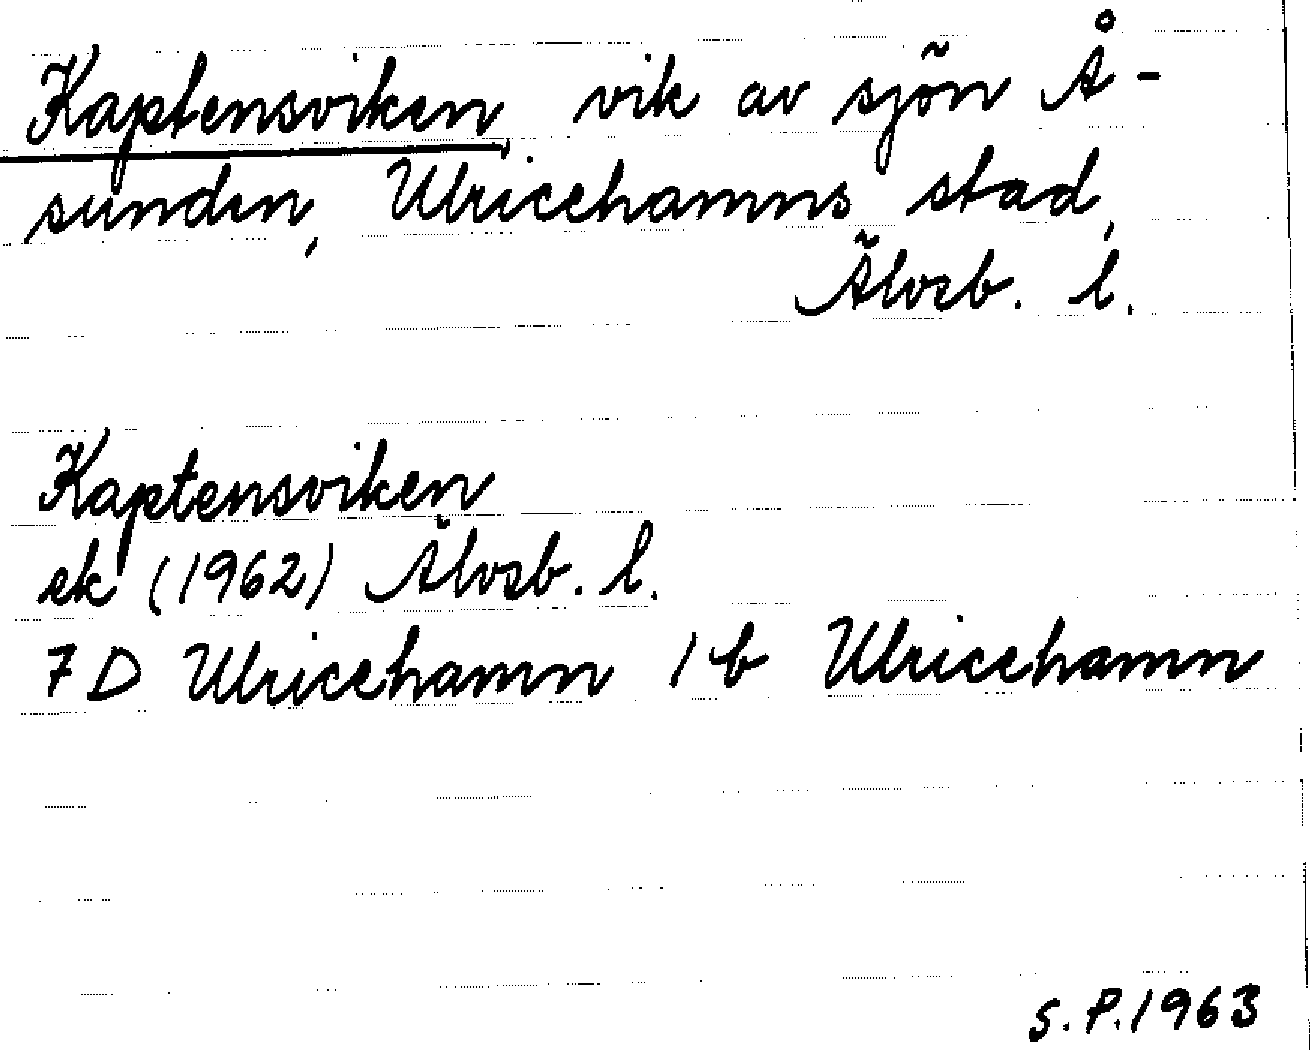 Kaptensviken, vik av sjön Å-
sunden, Ulricehamns stad,
Älvsb. l.
Kaptensviken
ek (1962) Älvsb. l.
7 D Ulricehamn 1 b Ulricehamn
S.P. 1963